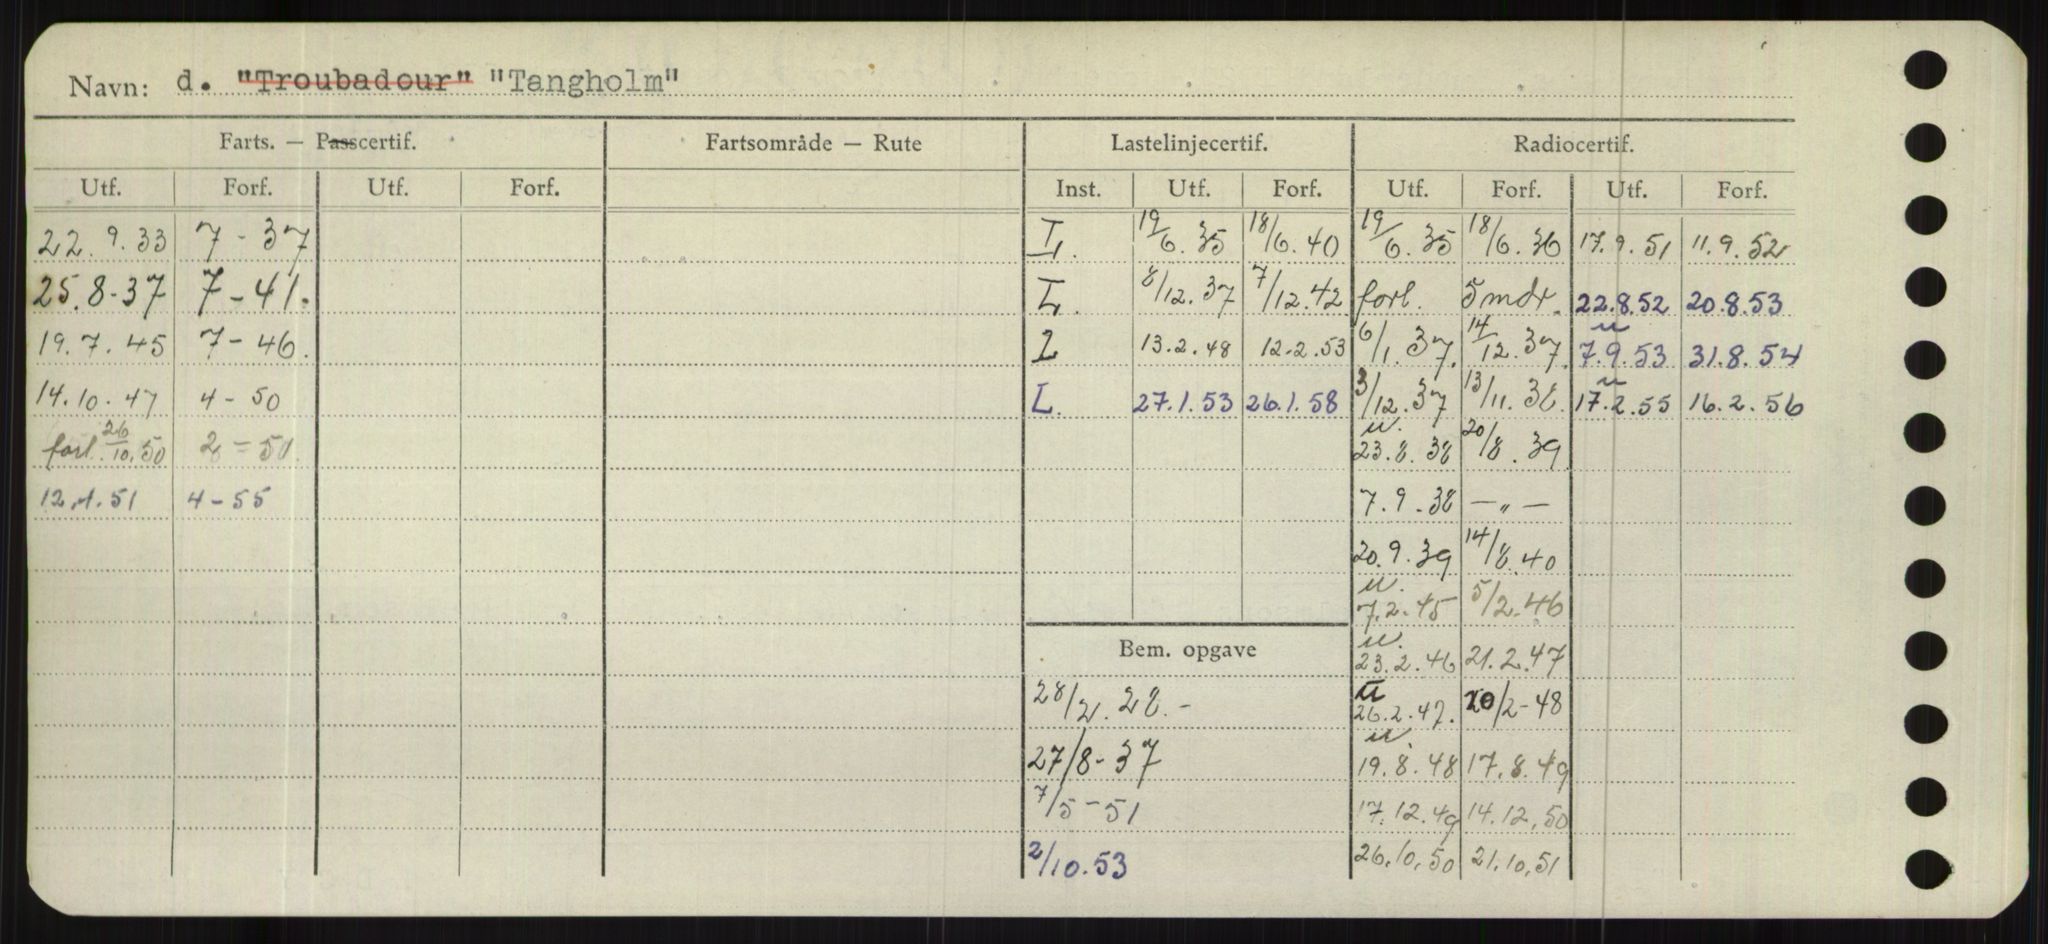 Navn: d. "Troubadour" "Tangholm"
Farts. — Passcertif. Fartsområde — Rute Lastelinjecertif. Radiocertif.
Utf. Forf. Utf. Forf. Inst. Utf. Forf. Utf. Forf. Utf. Forf.
22.9.33 7-37 I. 19/6.35 18/6.40 19/6.35 18/6.36 17.9.51 11.9.52
25.8-37 7-41. L. 8/12.37 7/12.42 forl. 5 mdr. 22.8.52 20.8.53
19.7.45 7-46. L 13.2.48 12.2.53 6/1.37. 14/12.37. u 7.9.53 31.8.54
14.10.47 4-50 L. 27.1.53 26.1.58 3/12.37 13/11.38. u 17.2.55 16.2.56
forl. 26/10.50 2-50 u. 23.8.38 20/8.39
12.1.51 4-55 7.9.38 — „ —
20.9.39 14/8.40
u. 7.2.45 5/2.46
Bem. opgave u. 23.2.46 21.2.47
28/2.28.- u 26.2.47. 20/2-48
27/8-37 u 19.8.48 17.8.49
7/5-51 17.12.49 14.12.50
2/10.53 26.10.50 21.10.51